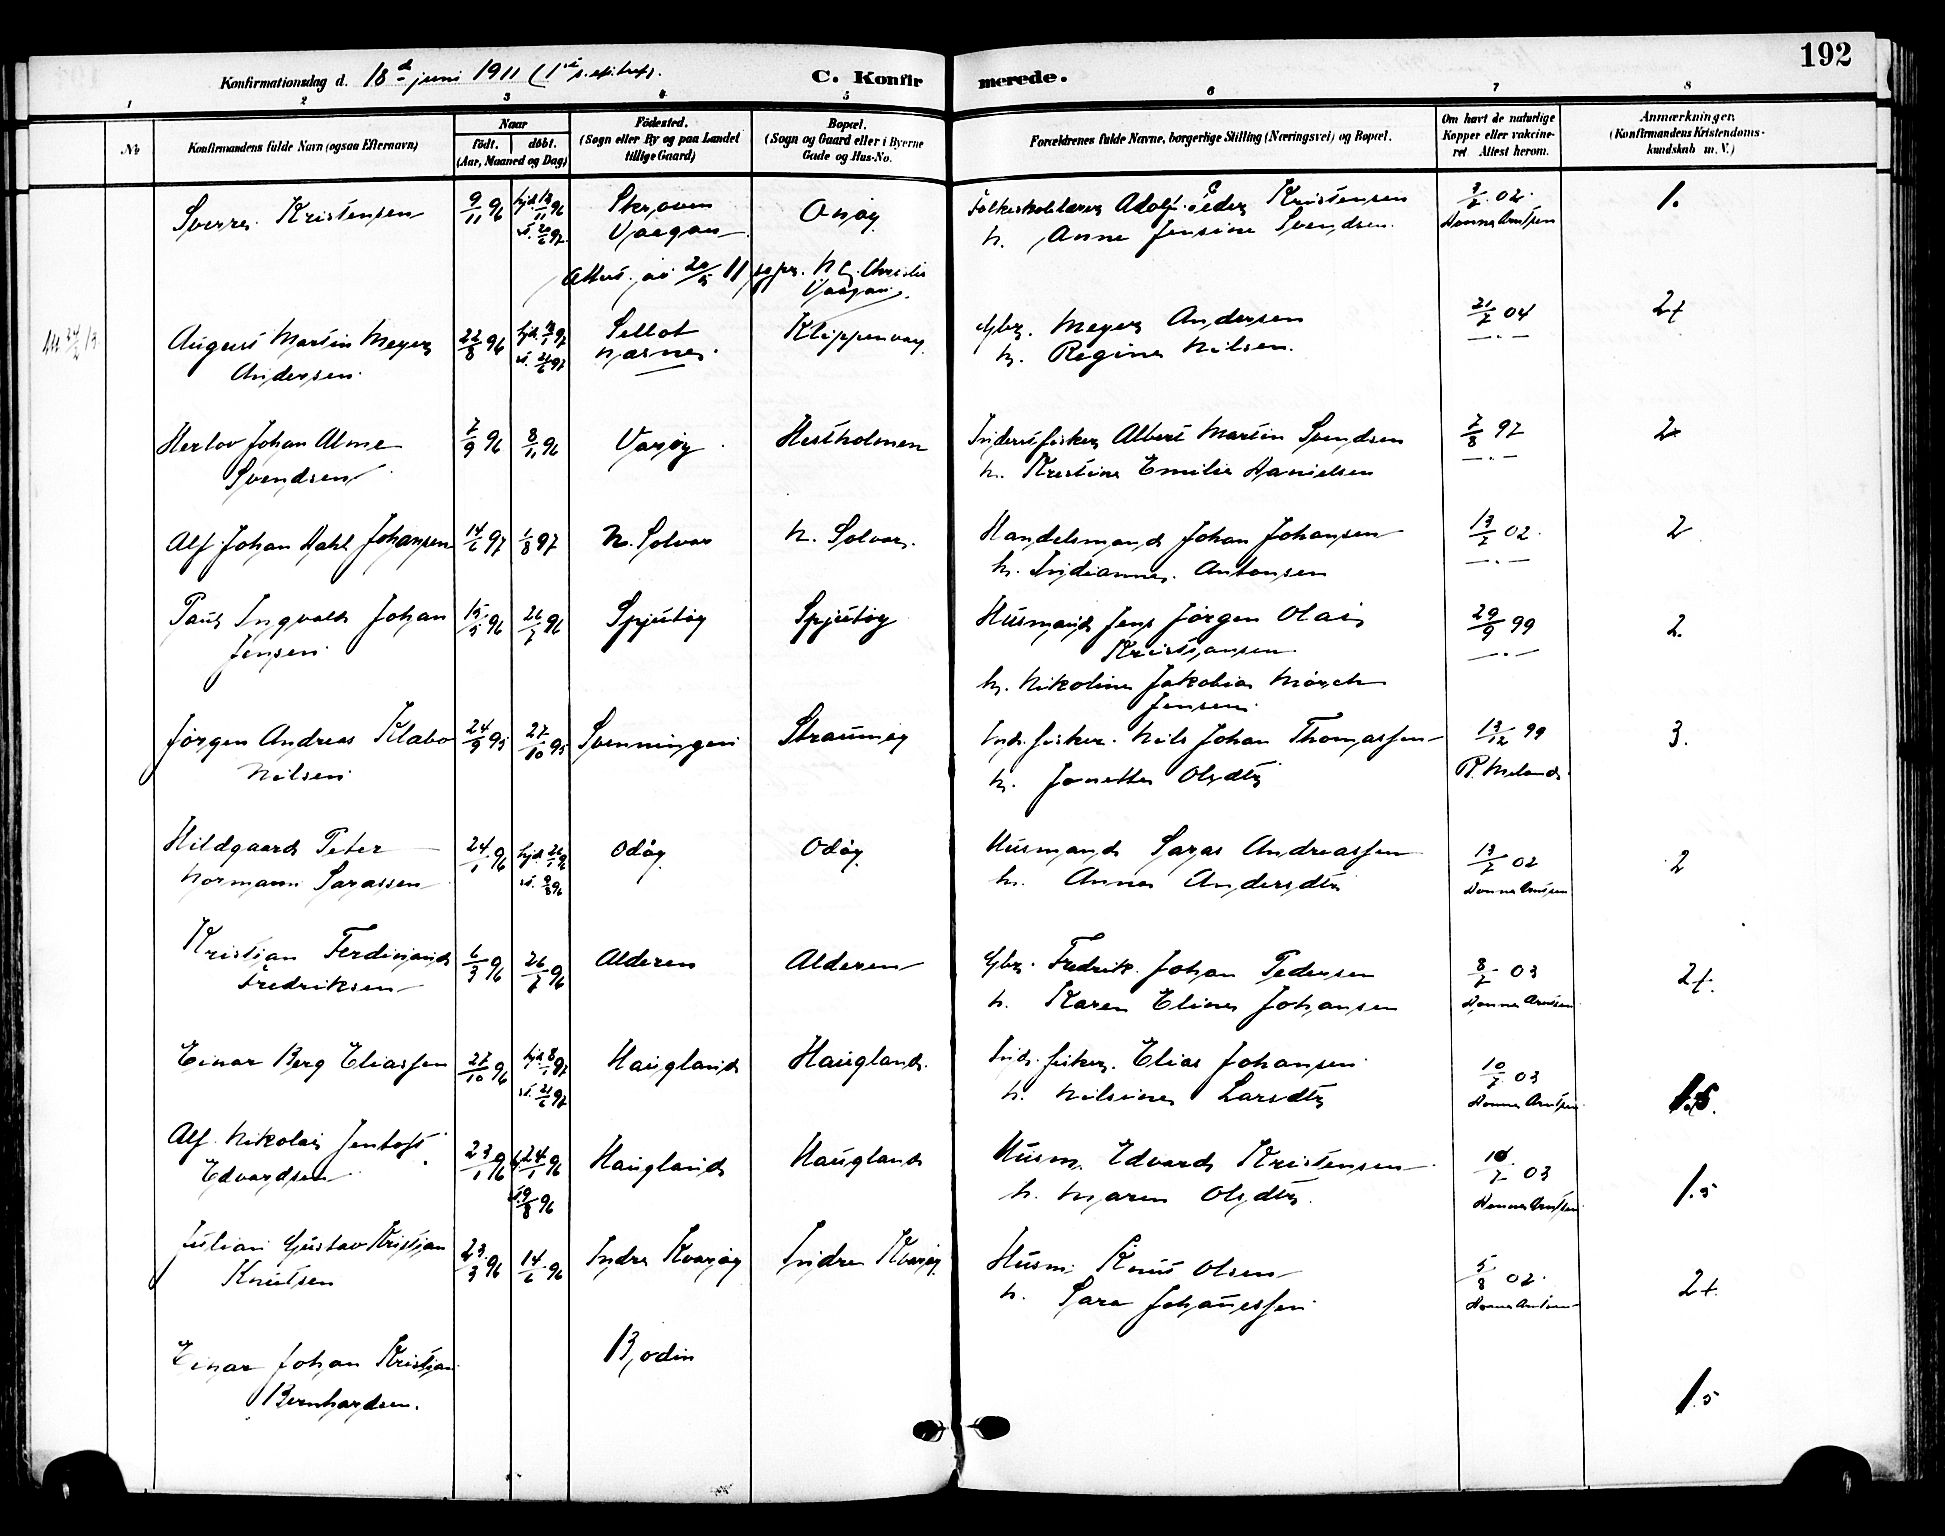 192
Konfirmationsdag d. 18de juni 1911 (1ste s. e.
C. Konfirmerede.
1 2 3 4 5 6 7 8
No
Konfirmandens fulde Navn (ogsaa Efternavn)
Naar
födt. döbt.
(Aar, Maaned og Dag)
Födested.
(Sogn eller By og paa Landet
tillige Gaard)
Bopæl.
(Sogn og Gaard eller i Byerne
Gade og Hus-No.
Forældrenes fulde Navne, borgerlige Stilling (Næringsvei) og Bopæl.
Om havt de naturlige
Kopper eller vakcine-
ret Attest herom.
Anmærkninger.
(Konfirmandens Kristendoms-
kundskab m. V.)
Sverre Kristensen 9/11 96 hjd. 13/11 96 Skroven Onøy Folkeskolelærer Adolf Peder Kristensen 3/7 02 1.
st. 20/6 97 Vaagan h. Anne Jensine Svendsen Hanna Arntsen
Attest av 20/5 11
Vaagan
August Martin Meyer 22/8 96 Sellot Klippenvag Gbr. Meyer Andersen 21/7 04 2+
Andersen Næsne h. Regine Nilsen — " —
Herlov Johan Alme 7/9 96 8/11 96 Varøy Hestholmen Inderstfisker Albert Martin Svendsen 7/8 97 2
Svendsen h. Kristine Emilie Danielsen — " —
Alf Johan Dahl Johansen 14/6 97 1/8 97 N. Solvær N. Solvær Handelsmand Johan Johansen 13/7 02 2
h. Indianne Antonsen — " —
Paul Ingvald Johan 15/5 96 26/7 96 Spjutøy Spjutøy Husmand Jens Jørgen Olai 29/9 99 2.
Jensen Kristjansen — " —
h. Nikoline Jakobia Mörch
Jensen
Jørgen Andreas Klabo 24/9 95 27/10 95 Svenningen Straumøy Ind. fisker Nils Johan Thomassen 13/12 99 3.
Nilsen h. Jonette Olsdtr P. Meland
Hildgaard Peter 24/1 96 hjd. 26/1 96 Odøy Odøy Husmand Saras Andreassen 13/7 02 2
Normann Sarassen st. 9/8 96 h. Anne Andersdtr Hanna Arntsen
Kristjan Ferdinand 6/3 96 26/7 96 Alderen Alderen Gbr. Fredrik Johan Pedersen 8/7 03 2+.
Fredriksen h. Karen Eline Johansen Hanna Arntsen
Einar Berg Eliassen 27/10 96 hjd. 8/1 97 Haugland Haugland Ind. fisker Elias Johansen 10/7 03 1.5.
st. 21/6 97 h. Nilsine Larsdtr Hanna Arntsen
Alf Nikolai Jentoft 23/1 96 24/1 96 Haugland Haugland Husm. Edvard Kristensen 10/7 03 1.5
Edvardsen st. 9/8 96 h. Maren Olsdtr. Hanna Arntsen
Julian Gustav Kristjan 23/3 96 14/6 96 Indre Kvarøy Indre Kvarøy Husm. Knut Olsen 5/8 02 2+.
Knutsen h. Sara Johanessen Hanna Arntsen
Einar Johan Kristjan Bodin 1.5
Bernhardsen.